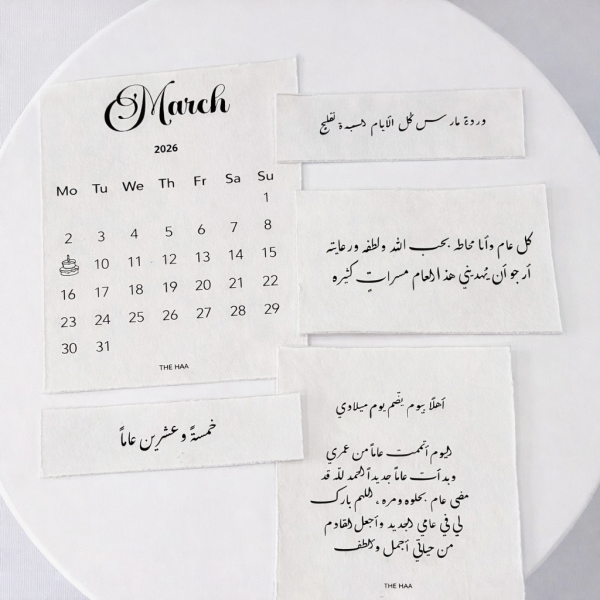 March
2026
Mo Tu We Th Fr Sa Su
1
2 3 4 5 6 7 8
10 11 12 13 14 15
16 17 18 19 20 21 22
23 24 25 26 27 28 29
30 31
THE HAA
وردة مارس كل الأيام السيدة تفليج
كل عام وأنا محاطه بحب الله ولطفه ورعايته
أرجو أن يُهديني هذا العام مسراتٍ كثيره
خمسةً وعشرين عاماً
أهلًا بيوم يضم يوم ميلادي
اليوم أتممت عاماً من عمري
وبدأت عاماً جديداً الحمد للّه قد
مضى عام بحلوه ومره ، اللهم بارك
لي في عامي الجديد وأجعل القادم
من حياتي أجمل وألطف
THE HAA